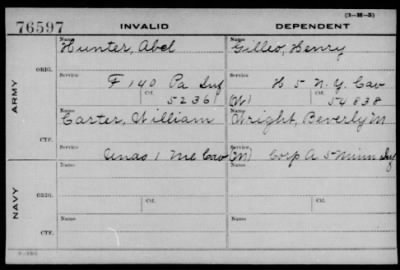 (3-M-5)
76597 INVALID DEPENDENT
Name Name
Hunter, Abel Gillio, Henry
ARMY
ORIG.
Service Service
F 140 Pa Inf H 5 N.Y. Cav
Ctf. Ctf.
52361 (W) 54838
Name Name
Carter, William Wright, Beverly M
CTF.
Service Service
Unas 1 Me Cav (M) Corp A 5 Minn Inf
NAVY
ORIG.
Name Name
Service Ctf. Service Ctf.
CTF.
Name Name